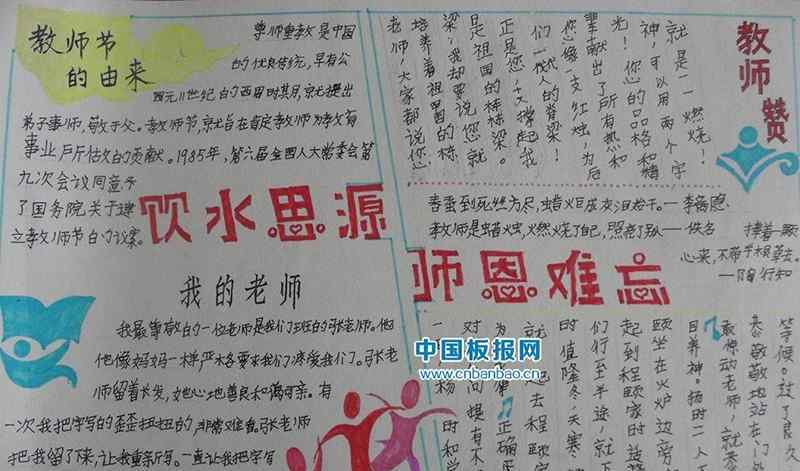 教师节
的由来
尊师重教是中国
的优良传统,早有公
西元11世纪的西周时其月,就提出
弟子事师,敬于父。教师节,就旨在肯定教师为教育
事业所作的贡献。1985年,第六届全国人大常委会第
九次会议同意了
了国务院关于建
立教师节的议案。
饮水思源
我的老师
我最尊敬的一位老师是我们班的张老师。他
他像妈妈一样严格要求我们,疼爱我们。张老
师留着长发,她心地善良和蔼可亲。有
一次我把字写的歪歪扭扭的,非常难看。张老师
把我留了下来,让我重新写。一直让我把字写
教师赞
就是——燃烧!
神,可以用两个字
光!您的品格和精
奉献出了所有热和
您像一支红烛,为后
们一代人的脊梁!
正是您,又撑起我
是祖国的栋梁。
梁,我却要说,您就
培养着祖国的栋
老师,大家都说您
春蚕到死丝方尽,蜡炬成灰泪始干。—李商隐
教师是蜡烛,燃烧了自己,照亮了别人—佚名
捧着一颗
心来,不带半根草去。
—陶行知
师恩难忘
等候。过了良久
恭敬敬地站在门
敢惊动老师,就
目养神。杨时二人
颐坐在火炉边旁
起到程颐家时
们行至半途,就
时值隆冬,天寒
就一起去程颐家
中国板报网
www.cnbanbao.cn